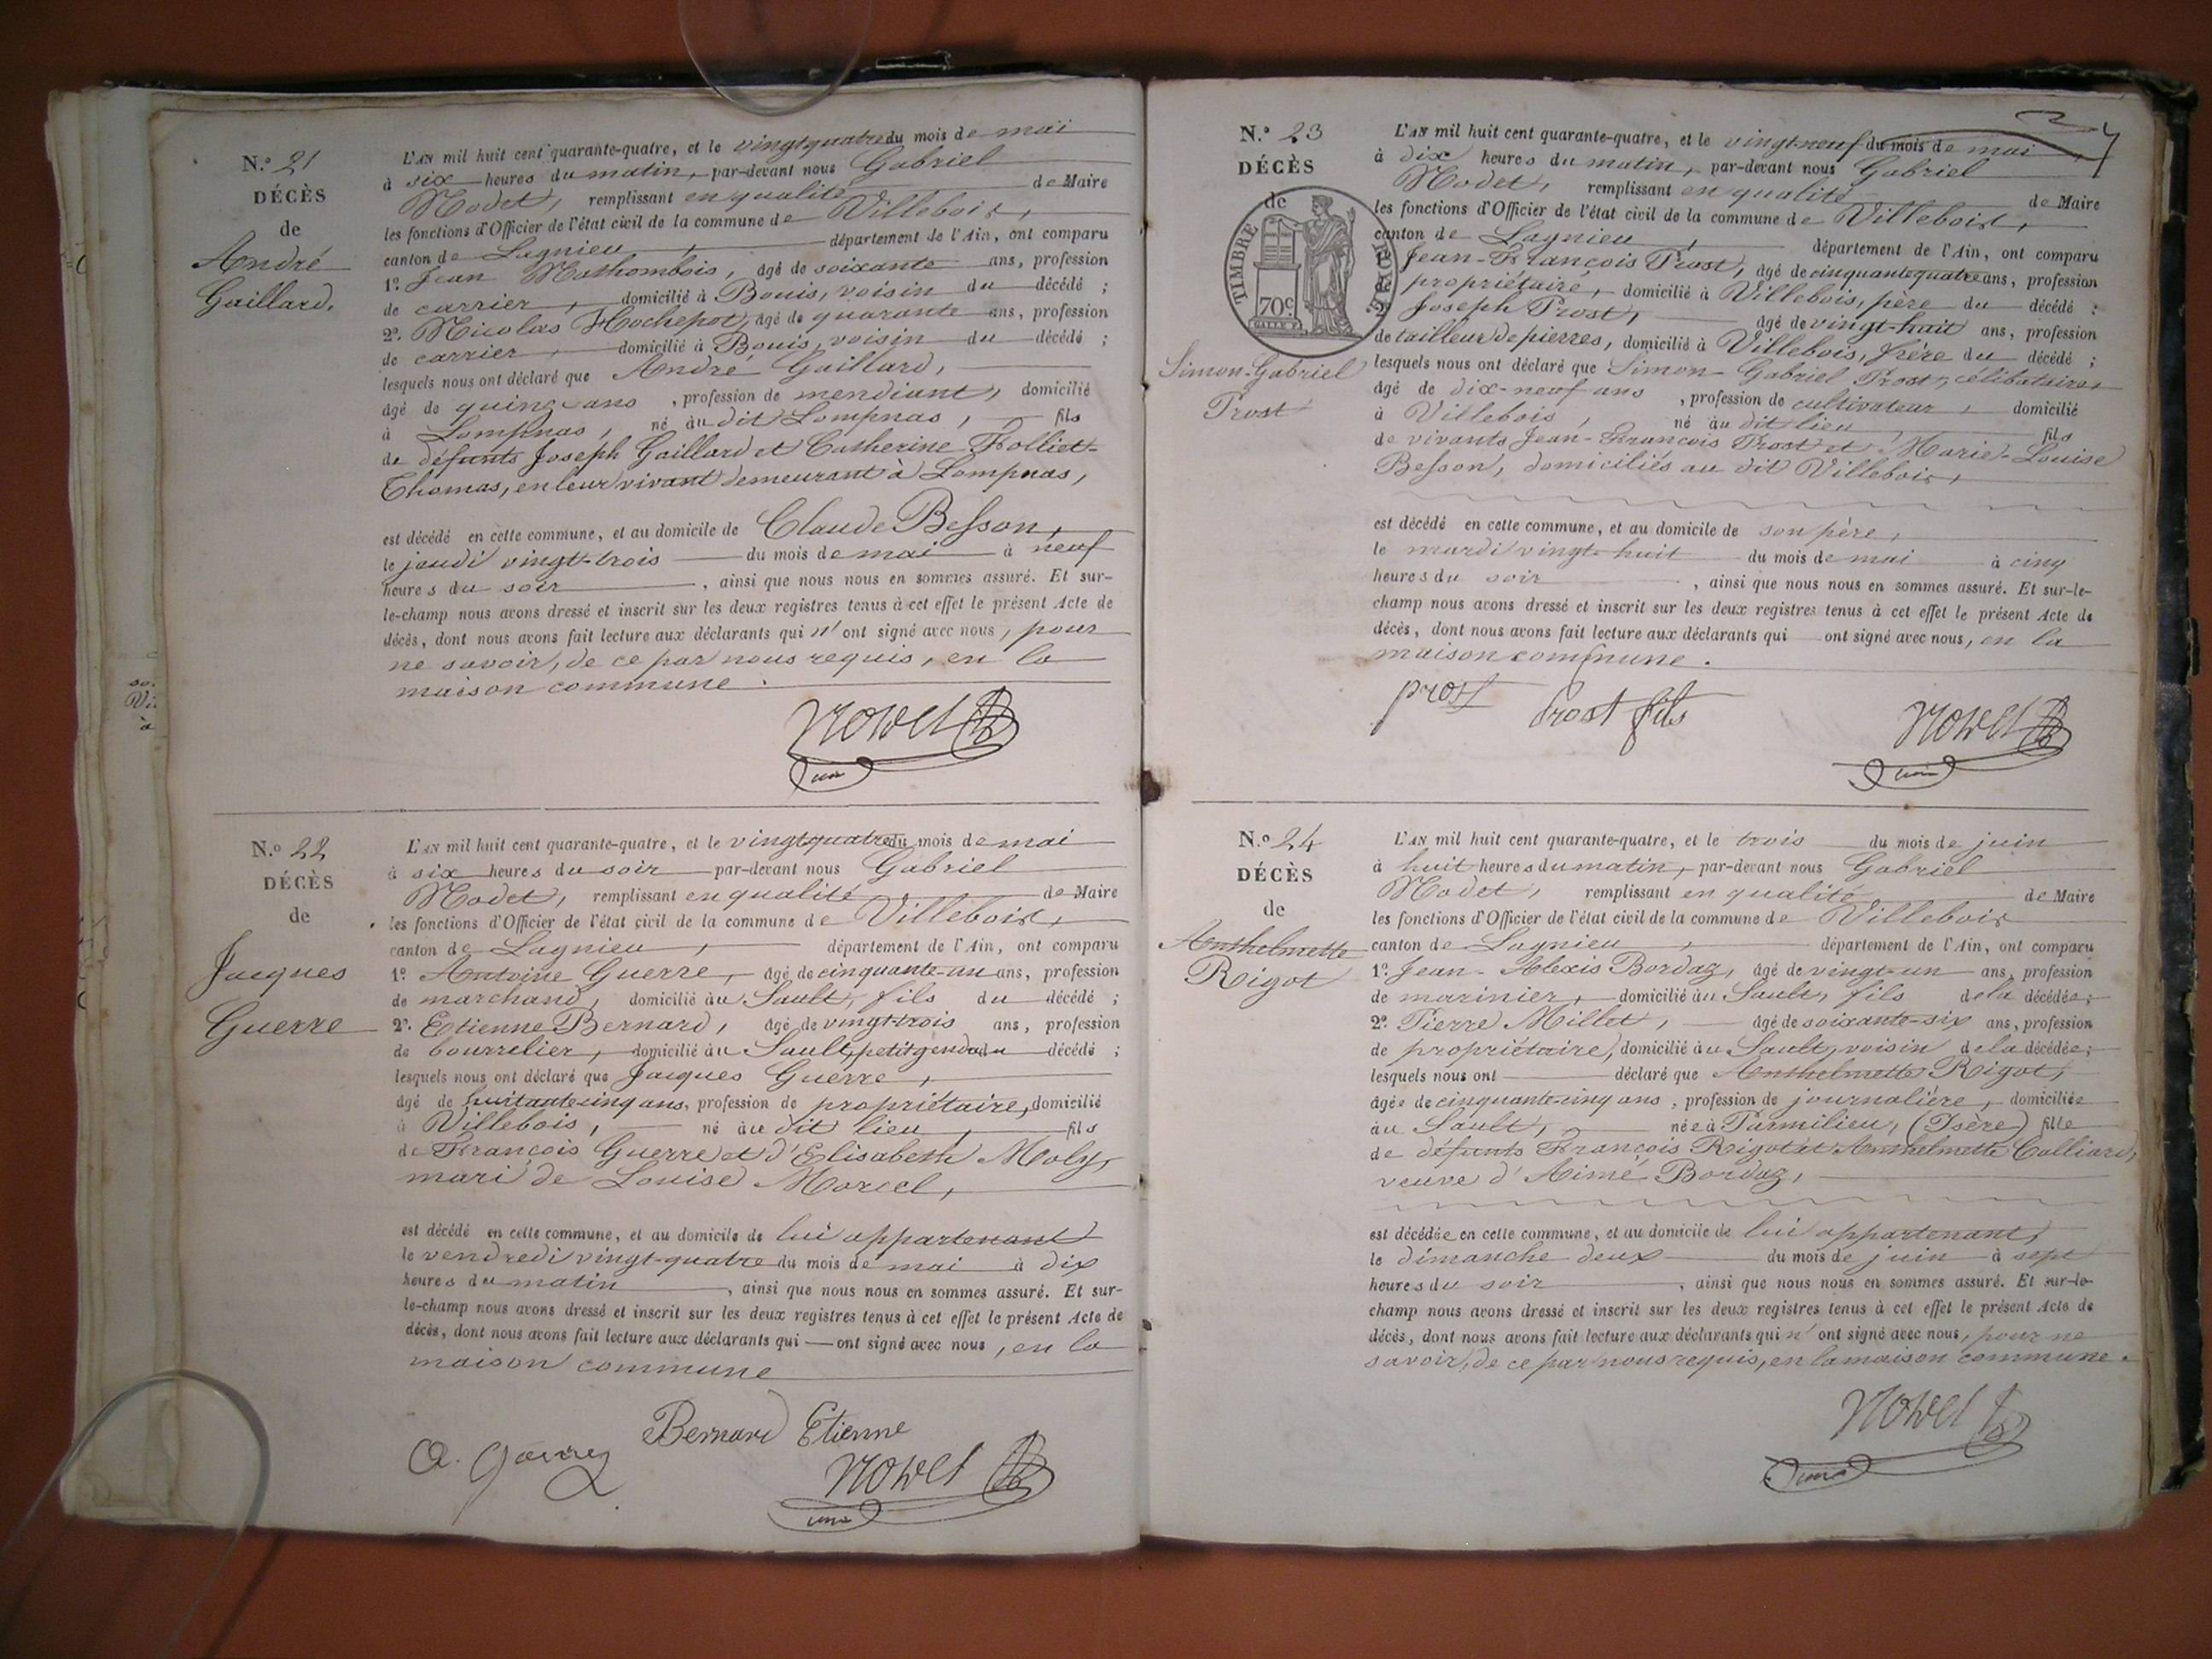 N.o 21
DÉCÈS
de
André
Gaillard,
L'AN mil huit cent quarante-quatre, et le vingtquatre du mois de mai
à six heures du matin, par-devant nous Gabriel
Nodet, remplissant en qualité de Maire
les fonctions d'Officier de l'état civil de la commune de Villebois,
canton de Lagnieu, département de l'Ain, ont comparu
1o. Jean , âgé de soixante ans, profession
de carrier, domicilié à Bouis, voisin du décédé ;
2o. Nicolas Hochepot, âgé de quarante ans, profession
de carrier, domicilié à Bouis, voisin du décédé ;
lesquels nous ont déclaré que André Gaillard,
âgé de quinze ans, profession de mendiant, domicilié
à Lompnas, né au dit Lompnas, fils
de défunts Joseph Gaillard et Catherine Folliet-
Thomas, en leur vivant demeurant à Lompnas,
est décédé en cette commune, et au domicile de Claude Besson,
le jeudi vingt-trois du mois de mai à neuf
heures du soir, ainsi que nous nous en sommes assuré. Et sur-
le-champ nous avons dressé et inscrit sur les deux registres tenus à cet effet le présent Acte de
décès, dont nous avons fait lecture aux déclarants qui n'ont signé avec nous, pour
ne savoir, de ce par nous requis, en la
maison commune.
Nodet
N.o 22
DÉCÈS
de
Jacques
Guerre
L'AN mil huit cent quarante-quatre, et le vingtquatre du mois de mai
à six heures du soir par-devant nous Gabriel
Nodet, remplissant en qualité de Maire
les fonctions d'Officier de l'état civil de la commune de Villebois,
canton de Lagnieu, département de l'Ain, ont comparu
1o. Antoine Guerre, âgé de cinquante-un ans, profession
de marchand, domicilié au Sault, fils du décédé ;
2o. Etienne Bernard, âgé de vingt-trois ans, profession
de bourrelier, domicilié au Sault, petit gendre du décédé ;
lesquels nous ont déclaré que Jacques Guerre,
âgé de huitante cinq ans, profession de propriétaire, domicilié
à Villebois, né au dit lieu, fils
de François Guerre et d'Elisabeth Moly,
mari de Louise Marcel,
est décédé en cette commune, et au domicile de lui appartenant
le vendredi vingt-quatre du mois de mai à dix
heures du matin, ainsi que nous nous en sommes assuré. Et sur-
le-champ nous avons dressé et inscrit sur les deux registres tenus à cet effet le présent Acte de
décès, dont nous avons fait lecture aux déclarants qui — ont signé avec nous, en la
maison commune
Bernard Etienne
Nodet
N.o 23
DÉCÈS
de
TIMBRE ROYAL
70c.
Simon-Gabriel
Prost
L'AN mil huit cent quarante-quatre, et le vingt-neuf du mois de mai
à dix heures du matin, par-devant nous Gabriel
Nodet, remplissant en qualité de Maire
les fonctions d'Officier de l'état civil de la commune de Villebois,
canton de Lagnieu, département de l'Ain, ont comparu
Jean-François Prost, âgé de cinquante quatre ans, profession
propriétaire, domicilié à Villebois, père du décédé ;
Joseph Prost, âgé de vingt-huit ans, profession
de tailleur de pierres, domicilié à Villebois, frère du décédé ;
lesquels nous ont déclaré que Simon-Gabriel Prost, célibataire,
âgé de dix-neuf ans, profession de cultivateur, domicilié
à Villebois, né au dit lieu, fils
de vivants Jean-François Prost et Marie-Louise
Besson, domiciliés au dit Villebois,
est décédé en cette commune, et au domicile de son père,
le mardi vingt-huit du mois de mai à cinq
heures du soir, ainsi que nous nous en sommes assuré. Et sur-le-
champ nous avons dressé et inscrit sur les deux registres tenus à cet effet le présent Acte de
décès, dont nous avons fait lecture aux déclarants qui — ont signé avec nous, en la
maison commune.
prost
Prost fils
Nodet
N.o 24
DÉCÈS
de
Anthelmette
Rigot
L'AN mil huit cent quarante-quatre, et le trois du mois de juin
à huit heures du matin, par-devant nous Gabriel
Nodet, remplissant en qualité de Maire
les fonctions d'Officier de l'état civil de la commune de Villebois
canton de Lagnieu, département de l'Ain, ont comparu
1o. Jean-Alexis Bordaz, âgé de vingt-un ans, profession
de marinier, domicilié au Sault, fils de la décédée ;
2o. Pierre Millet, âgé de soixante-six ans, profession
de propriétaire, domicilié au Sault, voisin de la décédée ;
lesquels nous ont déclaré que Anthelmette Rigot,
âgée de cinquante-cinq ans, profession de journalière, domiciliée
au Sault, née à Parmilieu, (Isère) fille
de défunts François Rigot et Anthelmette Calliard,
veuve d'Aimé Bordaz,
est décédée en cette commune, et au domicile de lui appartenant,
le dimanche deux du mois de juin à sept
heures du soir, ainsi que nous nous en sommes assuré. Et sur-le-
champ nous avons dressé et inscrit sur les deux registres tenus à cet effet le présent Acte de
décès, dont nous avons fait lecture aux déclarants qui n'ont signé avec nous, pour ne
savoir, de ce par nous requis, en la maison commune.
Nodet